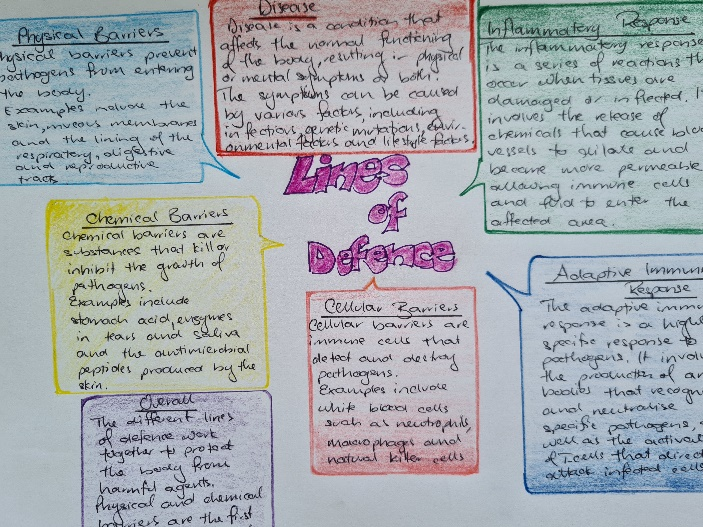 Physical Barriers
Physical barriers prevent
pathogens from entering
the body.
Examples include the
skin, mucous membranes
and the lining of the
respiratory, digestive
and reproductive
tracts
Disease
Disease is a condition that
affects the normal functioning
of the body, resulting in physical
or mental symptoms or both.
The symptoms can be caused
by various factors, including
infections, genetic mutations, envir-
onmental factors and lifestyle factors.
Inflammatory Response
The inflammatory response
is a series of reactions th
occur when tissues are
damaged or inflected. I
involves the release of
chemicals that cause bloo
vessels to dilate and
become more permeable
allowing immune cells
and fluid to enter the
affected area.
Lines
of
Defence
Chemical Barriers
Chemical barriers are
substances that kill or
inhibit the growth of
pathogens.
Examples include
stomach acid, enzymes
in tears and saliva
and the antimicrobial
peptides produced by the
skin.
Cellular Barriers
Cellular barriers are
immune cells that
detect and destroy
pathogens.
Examples include
white blood cells
such as neutrophils,
macrophages and
natural killer cells
Adaptive Immun
Response
The adaptive immu
response is a highl
specific response to
pathogens. It involv
the production of an
bodies that recogn
and neutralise
specific pathogens,
well as the activat
of T.cells that direct
attack infected cells
Overall
The different lines
of defence work
together to protect
the body from
harmful agents.
Physical and chemical
barriers are the first